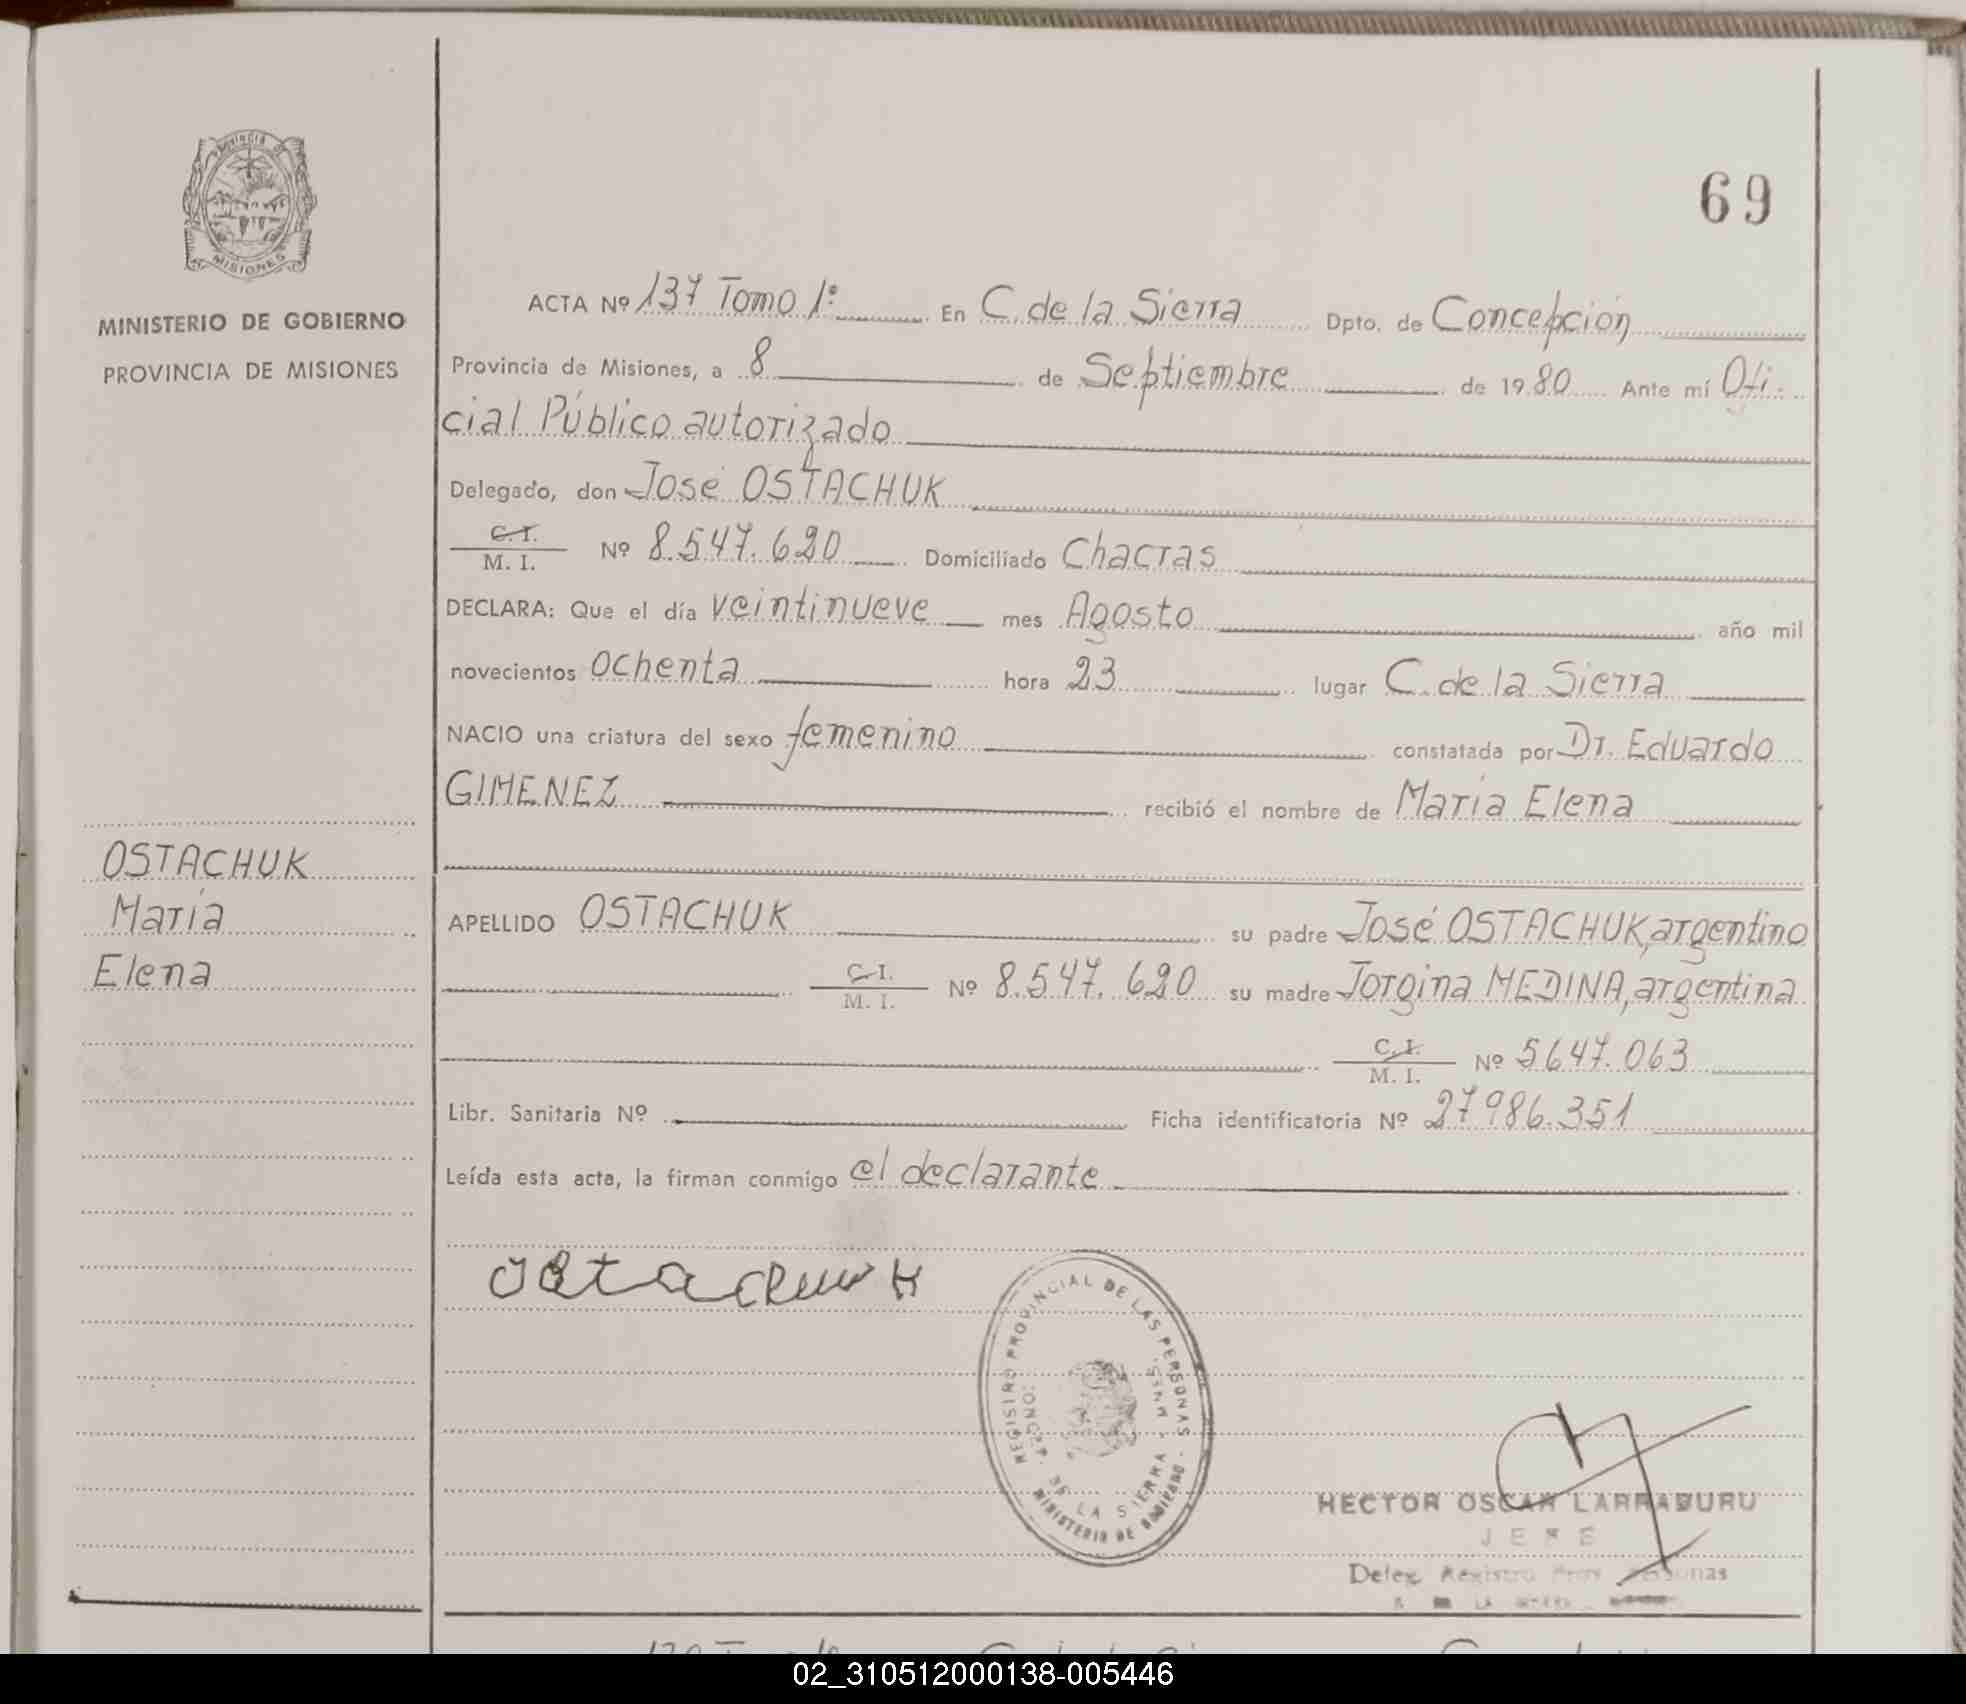 Provincia de
MISIONES
MINISTERIO DE GOBIERNO
PROVINCIA DE MISIONES
OSTACHUK
María
Elena
69
ACTA Nº 137 Tomo 1º En C. de la Sierra Dpto. de Concepción
Provincia de Misiones, a 8 de Septiembre de 1980 Ante mí Ofi-
cial Público autorizado
Delegado, don José OSTACHUK
C. I.
M. I. Nº 8.547.620 Domiciliado Chacras
DECLARA: Que el día veintinueve mes Agosto año mil
novecientos ochenta hora 23 lugar C. de la Sierra
NACIO una criatura del sexo femenino constatada por Dr. Eduardo
GIMENEZ recibió el nombre de María Elena
APELLIDO OSTACHUK su padre José OSTACHUK, argentino
C. I.
M. I. Nº 8.547.620 su madre Jorgina MEDINA, argentina
C. I.
M. I. Nº 5647.063
Libr. Sanitaria Nº Ficha identificatoria Nº 27986.351
Leída esta acta, la firman conmigo el declarante
Ostachuk
REGISTRO PROVINCIAL DE LAS PERSONAS
DE LA SIERRA - MNES.
MINISTERIO DE GOBIERNO
HECTOR OSCAR LARRABURU
JEFE
Deleg. Registro Prov. Personas
LA
02_310512000138-005446